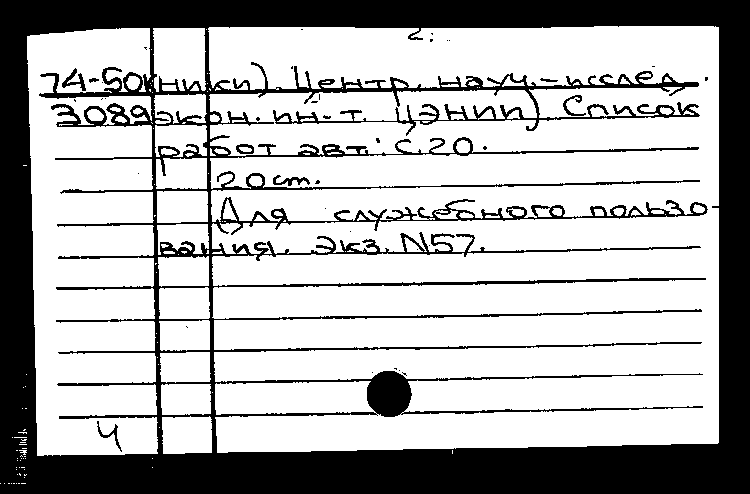 2.
74-50 кники). Центр. науч.-исслед.
3089 экон. ин-т. ЦЭНИИ) Список
работ авт.: с.20.
20 cm.
Для служебного пользо-
вания. Экз. N57.
4